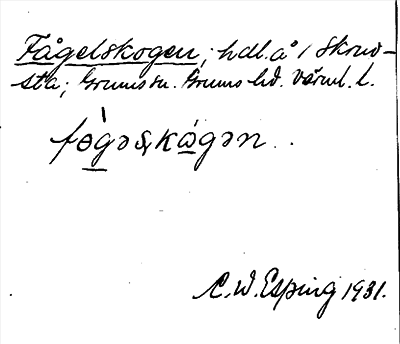 Fågelskogen; hdl. å 1 Skruv-
sta; Grums sn. Grums hd. Värml. l.
fo̲gəskågən.
C. W. Esping 1931.